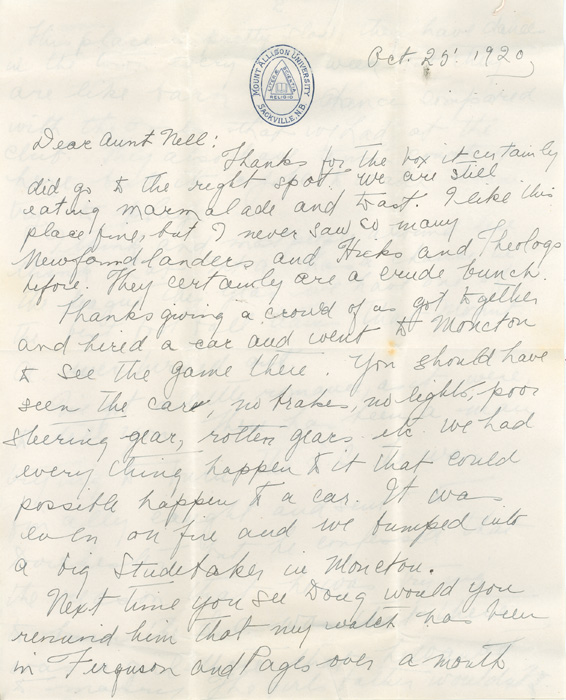 Oct. 25' 1920,
MOUNT ALLISON UNIVERSITY
SACKVILLE, N.B.
Dear Aunt Nell:
Thanks for the box it certainly
did go to the right spot. We are still
eating marmalade and toast. I like this
place fine, but I never saw so many
Newfoundlanders and Hicks and Theologs
before. They certainly are a crude bunch.
Thanksgiving a crowd of us got together
and hired a car and went to Moncton
to see the game there. You should have
seen the car, no brakes, no lights, poor
steering gear, rotten gears etc. We had
every thing happen to it that could
possible happen to a car. It was
even on fire and we bumped into
a big Studebaker in Moncton.
Next time you see Doug would you
remind him that my watch has been
in Ferguson and Pages over a month